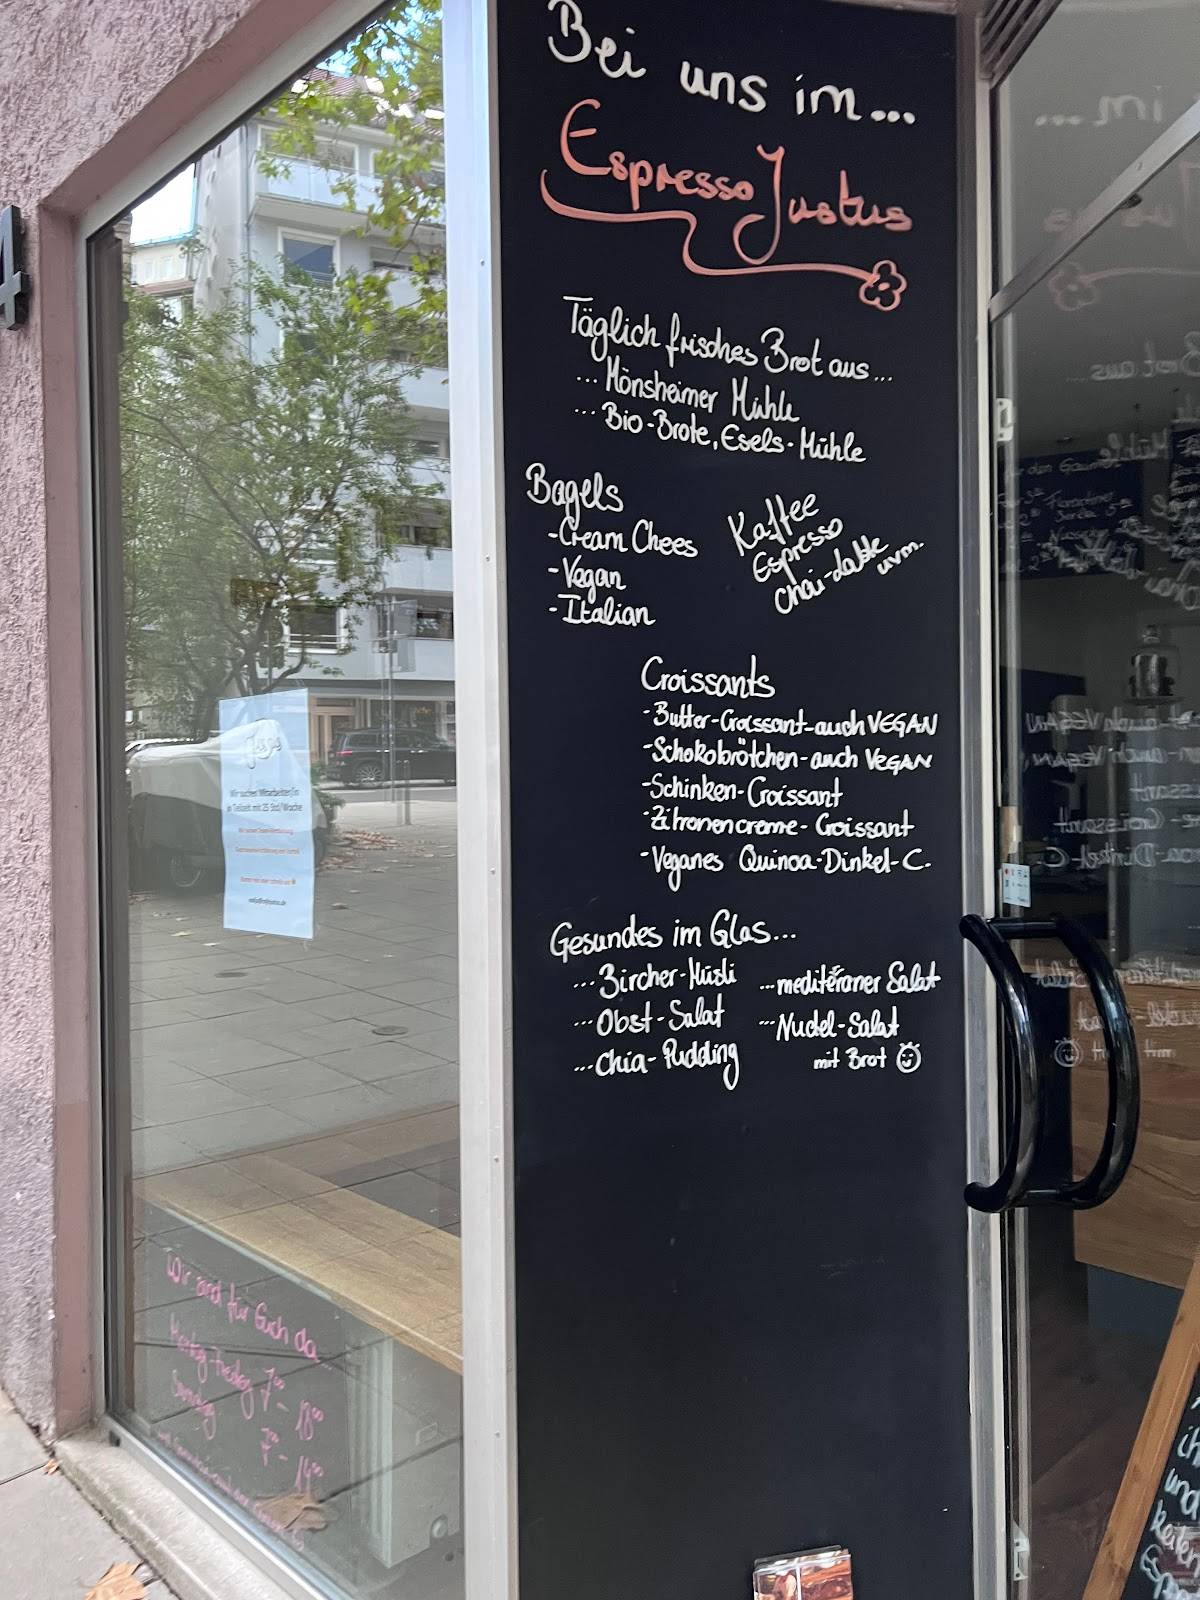 4
Bei uns im...
Espresso Justus
Täglich frisches Brot aus...
... Mönsheimer Mühle
... Bio-Brote, Esels-Mühle
Bagels
-Cream Chees
-Vegan
-Italian
Kaffee
Espresso
Chai-Latte
uvm.
Croissants
-Butter-Croissant-auch VEGAN
-Schokobrötchen-auch VEGAN
-Schinken-Croissant
-Zitronencreme-Croissant
-Veganes Quinoa-Dinkel-C.
Gesundes im Glas...
...Bircher-Müsli
...Obst-Salat
...Chia-Pudding
...mediteraner Salat
...Nudel-Salat
mit Brot
Wir suchen Mitarbeiter/in
in Teilzeit mit 25 Std/Woche
Wir sind für Euch da...
Montag-Freitag 7⁰⁰ - 18⁰⁰
Samstag 7³⁰ - 14⁰⁰
ih
und